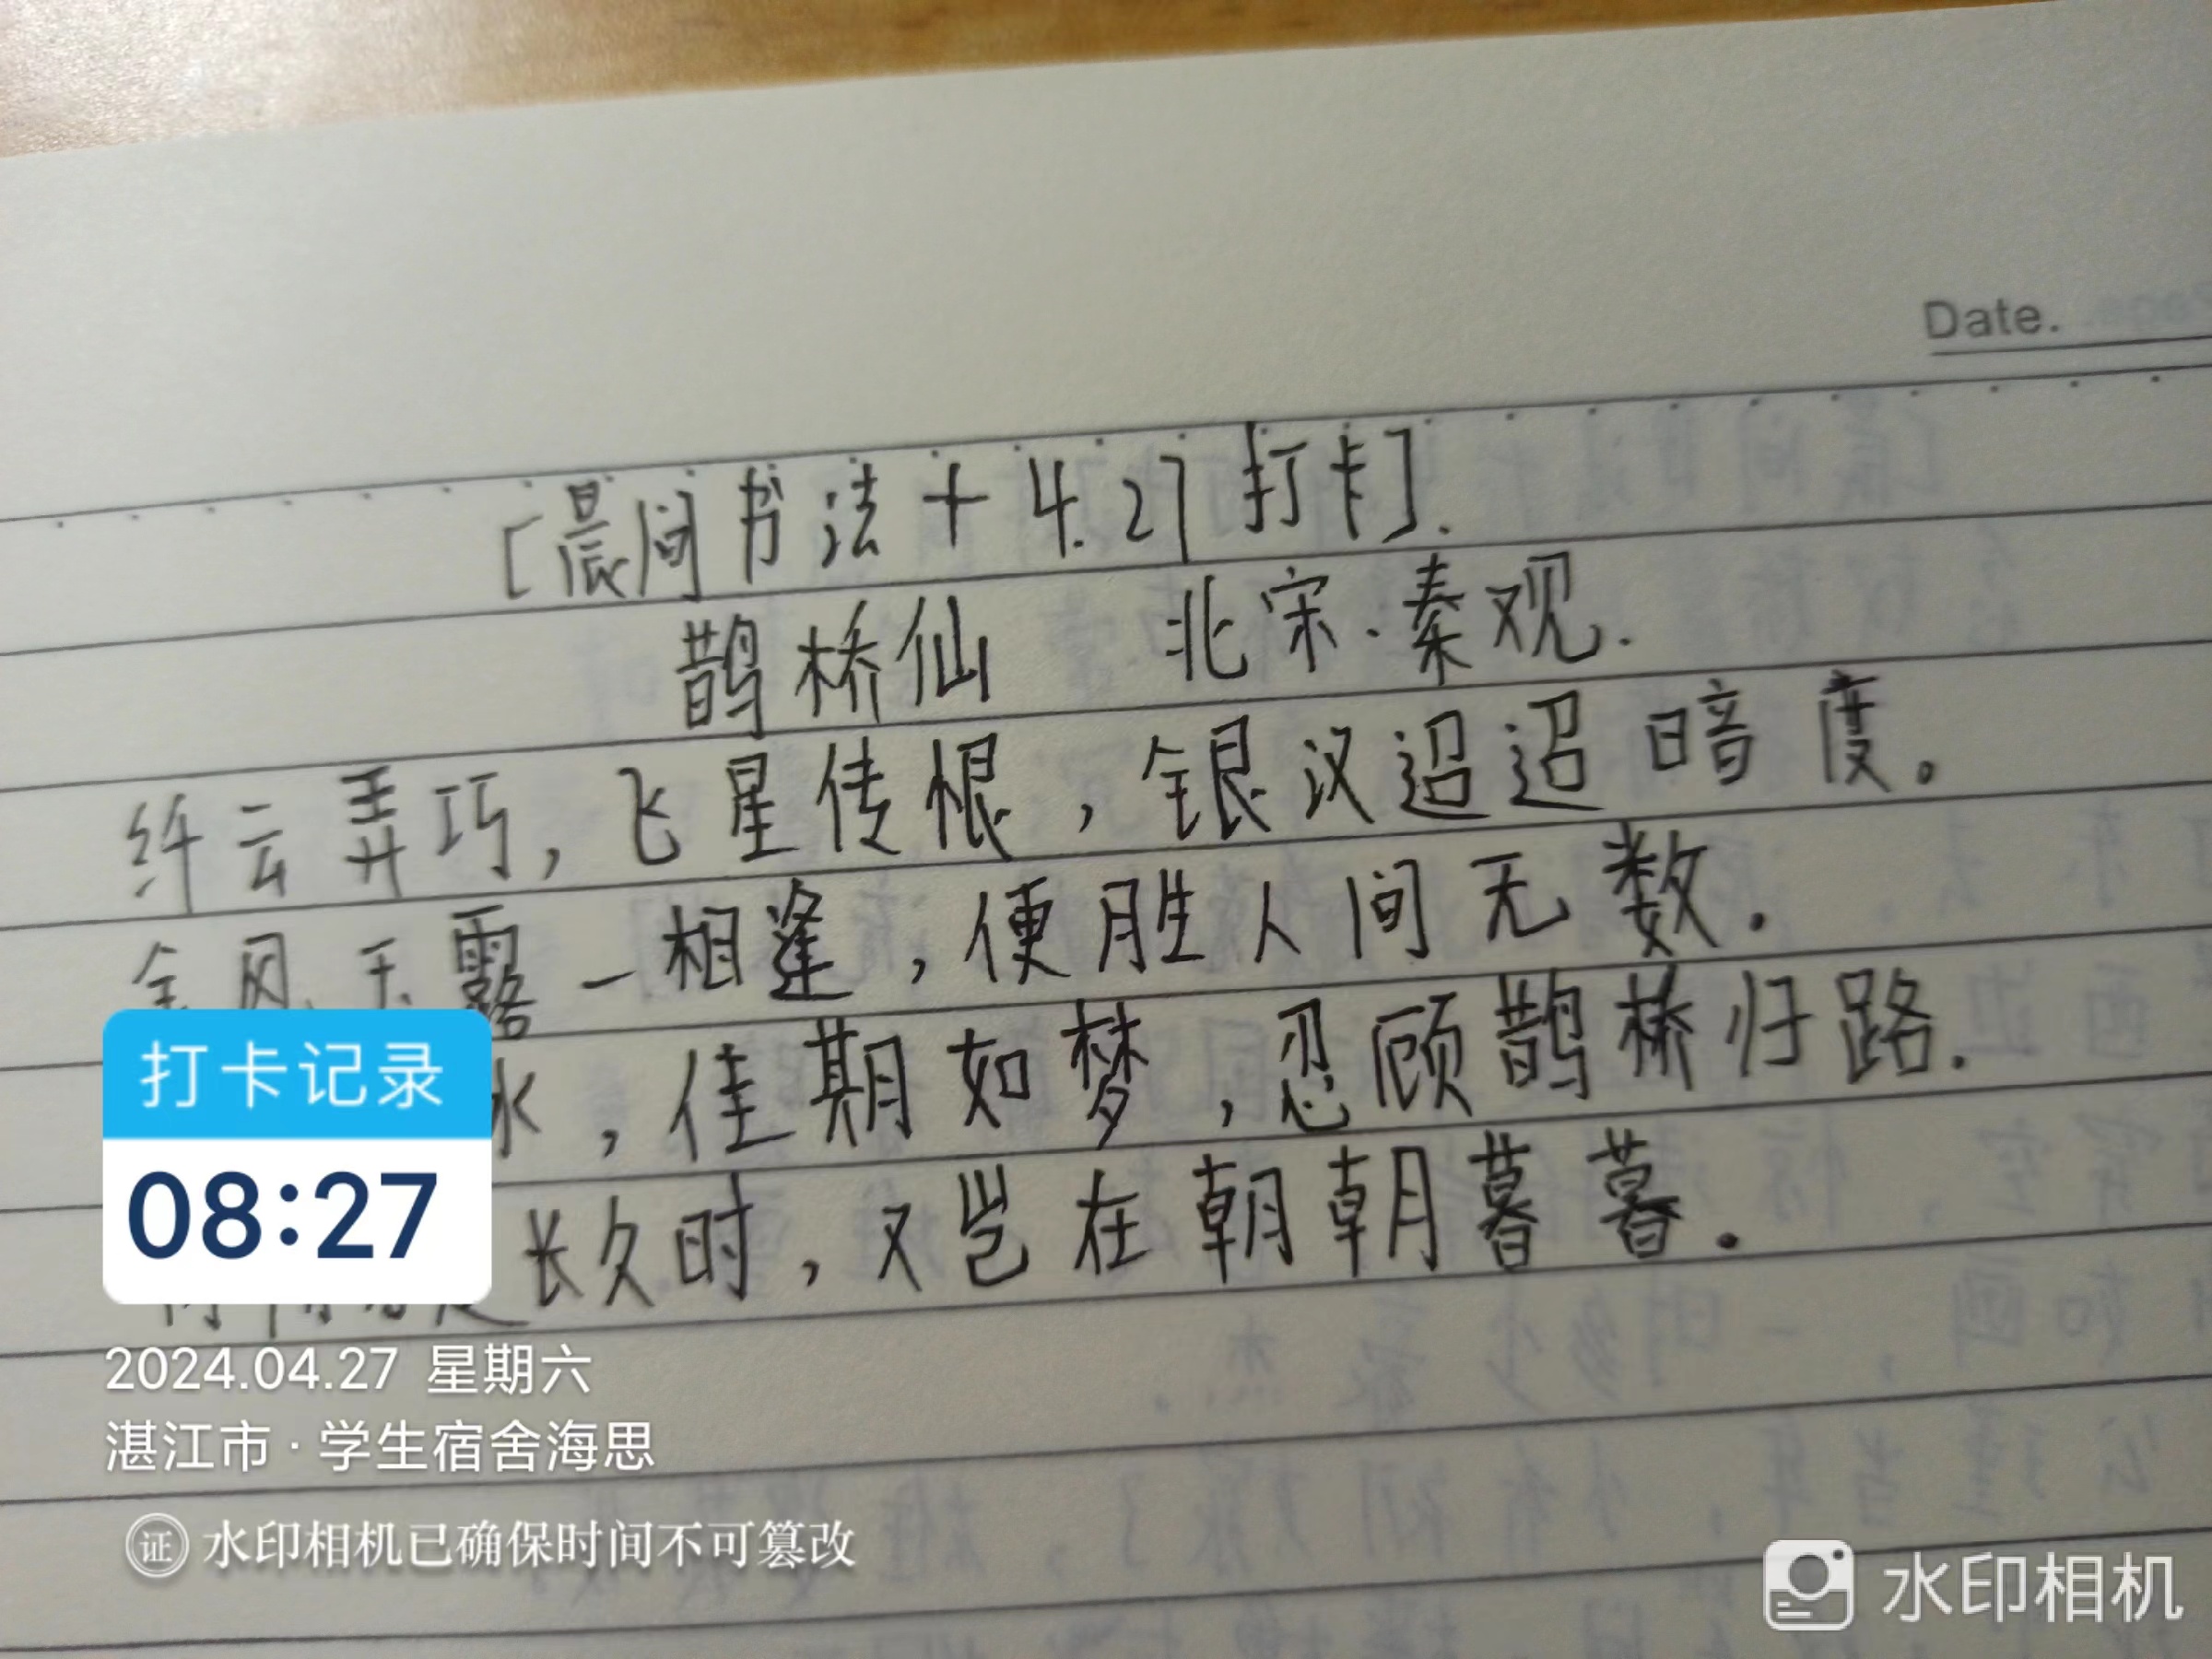 Date.
[晨间书法+4.27打卡].
鹊桥仙 北宋·秦观.
纤云弄巧，飞星传恨，银汉迢迢暗度。
金风玉露一相逢，便胜人间无数.
水，佳期如梦，忍顾鹊桥归路.
长久时，又岂在朝朝暮暮.
打卡记录
08:27
2024.04.27 星期六
湛江市·学生宿舍海思
证 水印相机已确保时间不可篡改
水印相机